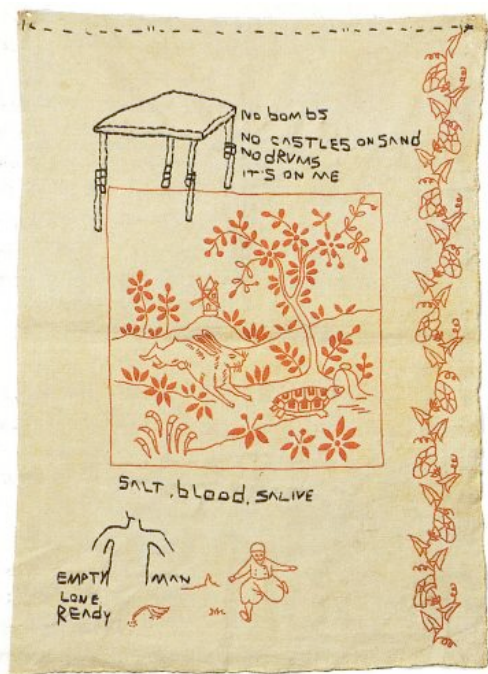 NO bombs
NO CASTLES ON SAND
NO DRUMS
IT'S ON ME
SALT, blood, SALIVE
EMPTY MAN
LONE
READY